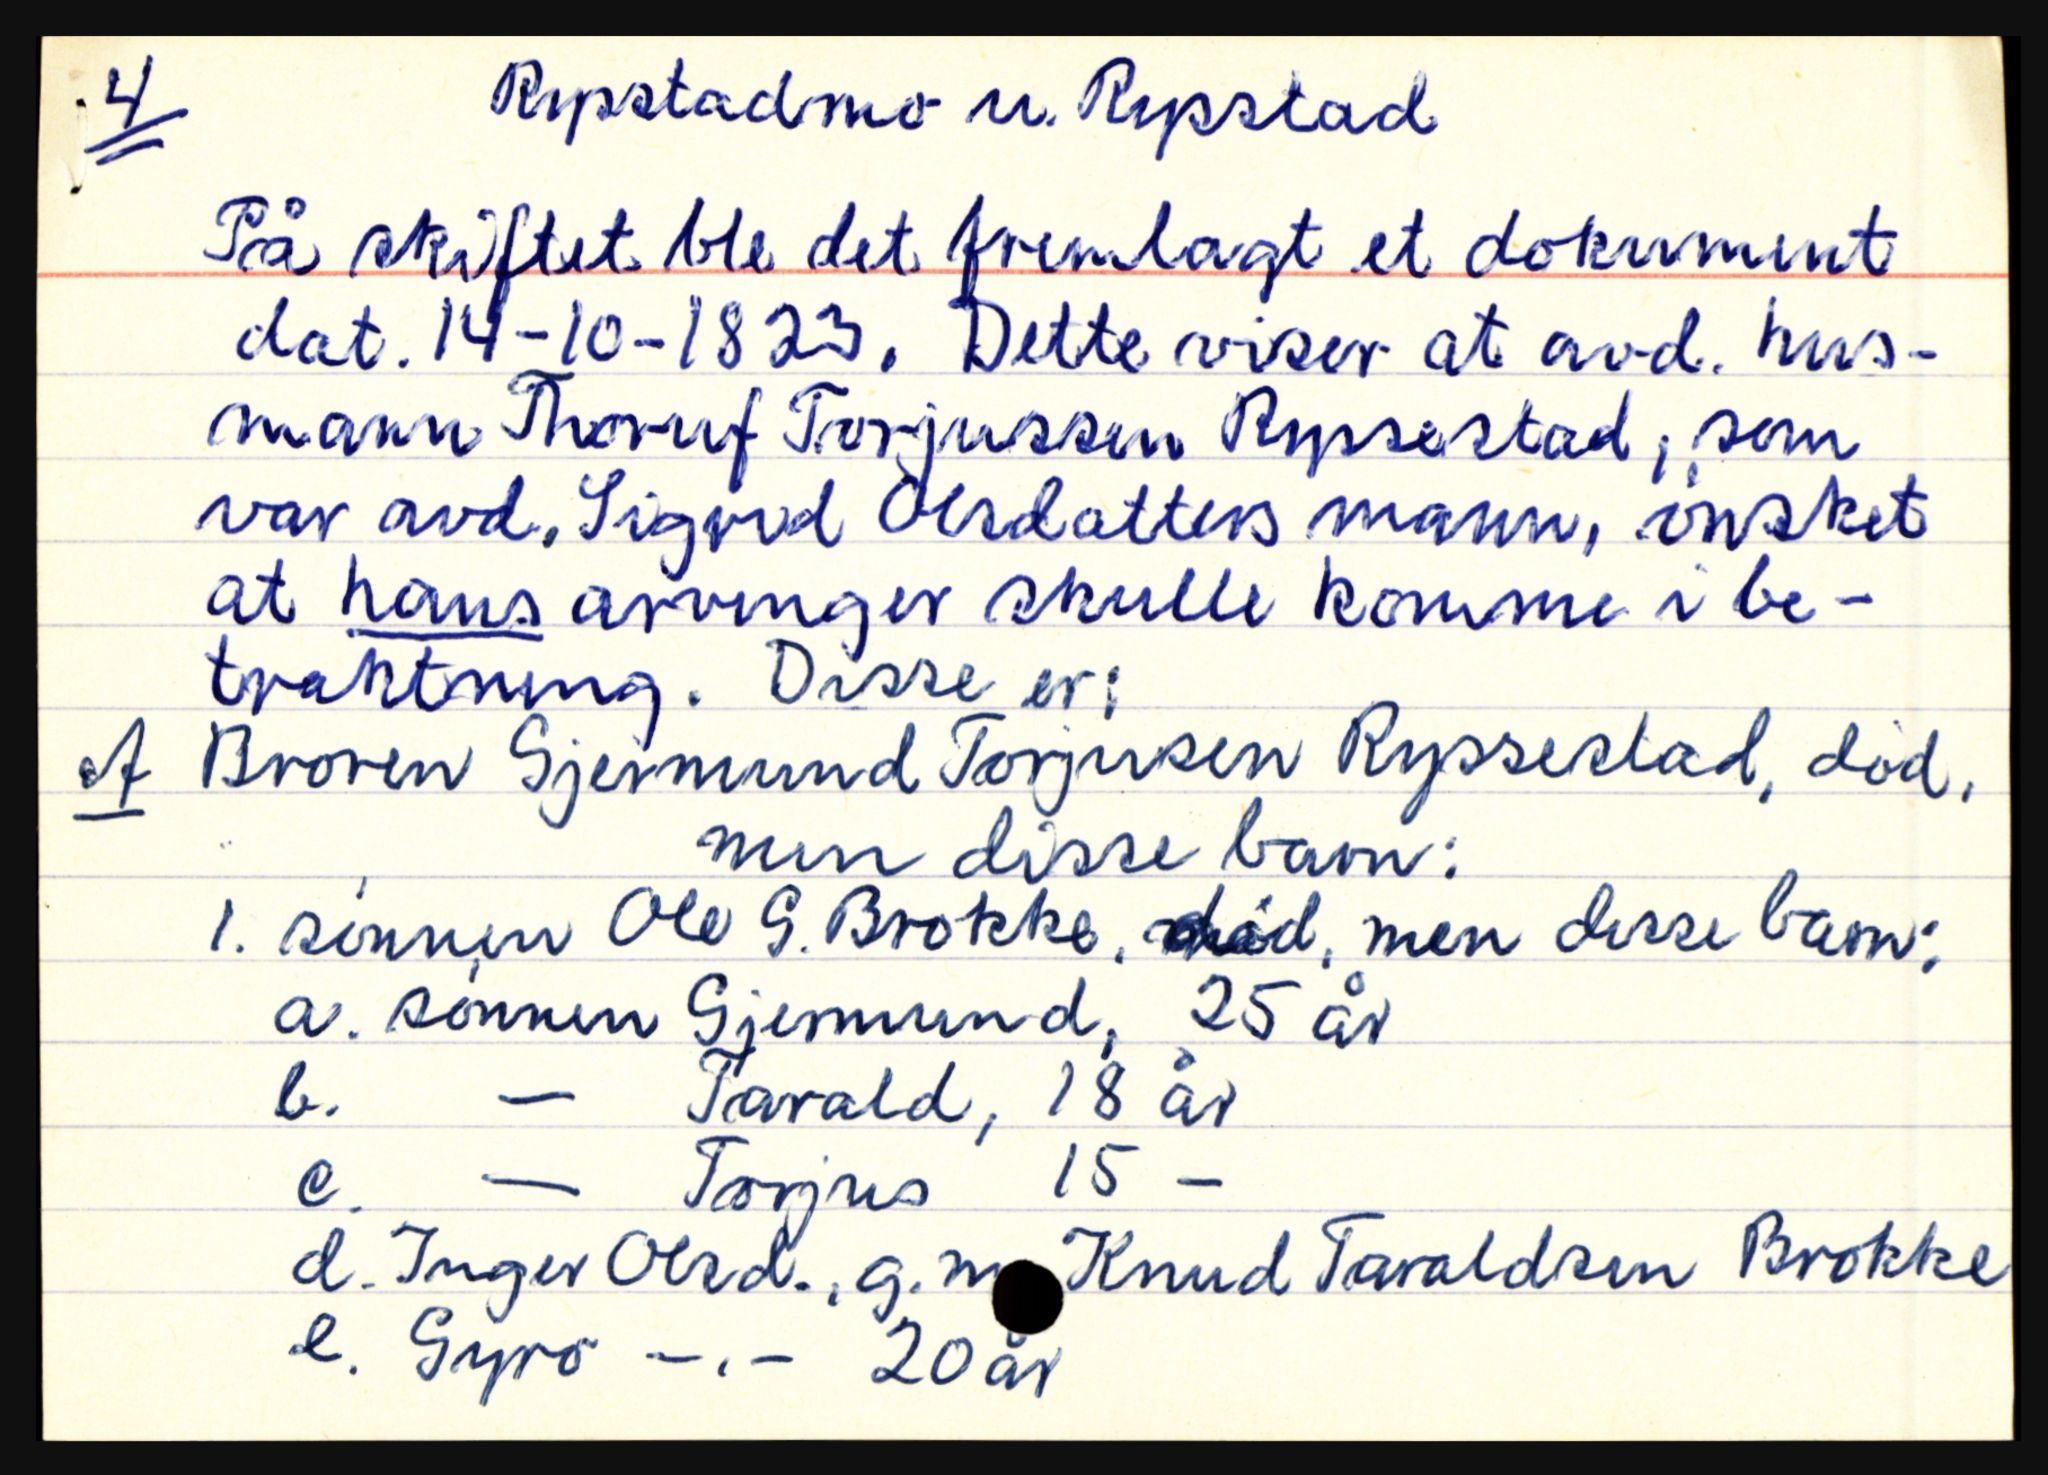 4 Rypstadmo u. Rypstad
På skiftet ble det fremlagt et dokument
dat. 14-10-1823. Dette viser at avd. hus-
mann Thoruf Torjussen Rypsestad, som
var avd. Sigrid Olsdatters mann, ønsket
at hans arvinger skulle komme i be-
traktning. Disse er:
A Broren Gjermund Torjusen Ryssestad, død,
men disse barn:
1. sønnen Ole G. Brokke, død, men disse barn:
a. sønnen Gjermund, 25 år
b. — Tarald, 18 år
c. — Torjus 15 —
d. Inger Olsd., g. m. Knud Taraldsen Brokke
e. Gyro —.— 20 år